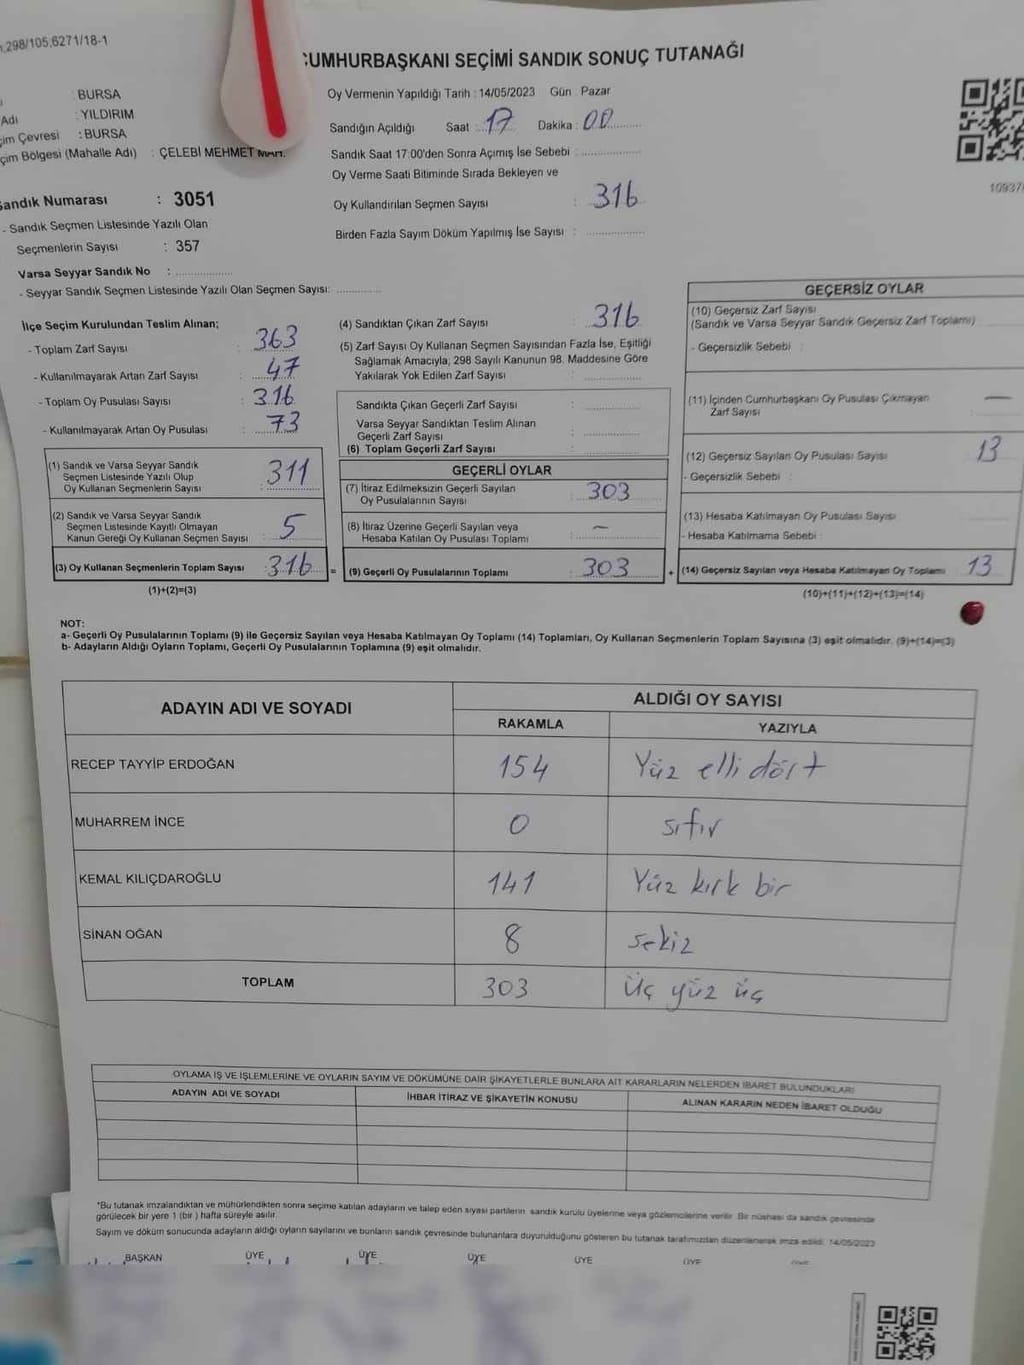 .298/105.6271/18-1
CUMHURBAŞKANI SEÇİMİ SANDIK SONUÇ TUTANAĞI
: BURSA
Adı : YILDIRIM
çim Çevresi : BURSA
çim Bölgesi (Mahalle Adı) : ÇELEBİ MEHMET MAH.
Sandık Numarası : 3051
- Sandık Seçmen Listesinde Yazılı Olan
Seçmenlerin Sayısı : 357
Varsa Seyyar Sandık No :
- Seyyar Sandık Seçmen Listesinde Yazılı Olan Seçmen Sayısı:
Oy Vermenin Yapıldığı Tarih : 14/05/2023 Gün : Pazar
Sandığın Açıldığı Saat : 17 Dakika : 00
Sandık Saat 17:00'den Sonra Açımış İse Sebebi :
Oy Verme Saati Bitiminde Sırada Bekleyen ve
Oy Kullandırılan Seçmen Sayısı : 316
Birden Fazla Sayım Döküm Yapılmış İse Sayısı :
10937
İlçe Seçim Kurulundan Teslim Alınan;
- Toplam Zarf Sayısı : 363
- Kullanılmayarak Artan Zarf Sayısı : 47
- Toplam Oy Pusulası Sayısı : 316
- Kullanılmayarak Artan Oy Pusulası : 73
(1) Sandık ve Varsa Seyyar Sandık
Seçmen Listesinde Yazılı Olup
Oy Kullanan Seçmenlerin Sayısı : 311
(2) Sandık ve Varsa Seyyar Sandık
Seçmen Listesinde Kayıtlı Olmayan
Kanun Gereği Oy Kullanan Seçmen Sayısı : 5
(3) Oy Kullanan Seçmenlerin Toplam Sayısı : 316
(1)+(2)=(3)
(4) Sandıktan Çıkan Zarf Sayısı : 316
(5) Zarf Sayısı Oy Kullanan Seçmen Sayısından Fazla İse, Eşitliği
Sağlamak Amacıyla; 298 Sayılı Kanunun 98. Maddesine Göre
Yakılarak Yok Edilen Zarf Sayısı :
Sandıkta Çıkan Geçerli Zarf Sayısı :
Varsa Seyyar Sandıktan Teslim Alınan
Geçerli Zarf Sayısı :
(6) Toplam Geçerli Zarf Sayısı :
GEÇERLİ OYLAR
(7) İtiraz Edilmeksizin Geçerli Sayılan
Oy Pusulalarının Sayısı : 303
(8) İtiraz Üzerine Geçerli Sayılan veya
Hesaba Katılan Oy Pusulası Toplamı : —
= (9) Geçerli Oy Pusulalarının Toplamı : 303
GEÇERSİZ OYLAR
(10) Geçersiz Zarf Sayısı
(Sandık ve Varsa Seyyar Sandık Geçersiz Zarf Toplamı)
- Geçersizlik Sebebi :
(11) İçinden Cumhurbaşkanı Oy Pusulası Çıkmayan
Zarf Sayısı : —
(12) Geçersiz Sayılan Oy Pusulası Sayısı 13
- Geçersizlik Sebebi :
(13) Hesaba Katılmayan Oy Pusulası Sayısı
- Hesaba Katılmama Sebebi :
+ (14) Geçersiz Sayılan veya Hesaba Katılmayan Oy Toplamı 13
(10)+(11)+(12)+(13)=(14)
NOT:
a- Geçerli Oy Pusulalarının Toplamı (9) ile Geçersiz Sayılan veya Hesaba Katılmayan Oy Toplamı (14) Toplamları, Oy Kullanan Seçmenlerin Toplam Sayısına (3) eşit olmalıdır. (9)+(14)=(3)
b- Adayların Aldığı Oyların Toplamı, Geçerli Oy Pusulalarının Toplamına (9) eşit olmalıdır.
ADAYIN ADI VE SOYADI ALDIĞI OY SAYISI
RAKAMLA YAZIYLA
RECEP TAYYİP ERDOĞAN 154 Yüz elli dört
MUHARREM İNCE 0 sıfır
KEMAL KILIÇDAROĞLU 141 Yüz kırk bir
SİNAN OĞAN 8 sekiz
TOPLAM 303 Üç yüz üç
OYLAMA İŞ VE İŞLEMLERİNE VE OYLARIN SAYIM VE DÖKÜMÜNE DAİR ŞİKAYETLERLE BUNLARA AİT KARARLARIN NELERDEN İBARET BULUNDUKLARI
ADAYIN ADI VE SOYADI İHBAR İTİRAZ VE ŞİKAYETİN KONUSU ALINAN KARARIN NEDEN İBARET OLDUĞU
*Bu tutanak imzalandıktan ve mühürlendikten sonra seçime katılan adayların ve talep eden siyasi partilerin sandık kurulu üyelerine veya gözlemcilerine verilir. Bir nüshası da sandık çevresinde
görülecek bir yere 1 (bir) hafta süreyle asılır.
Sayım ve döküm sonucunda adayların aldığı oyların sayılarını ve bunların sandık çevresinde bulunanlara duyurulduğunu gösteren bu tutanak tarafımızdan düzenlenerek imza edildi. 14/05/2023
BAŞKAN ÜYE ÜYE ÜYE ÜYE ÜYE